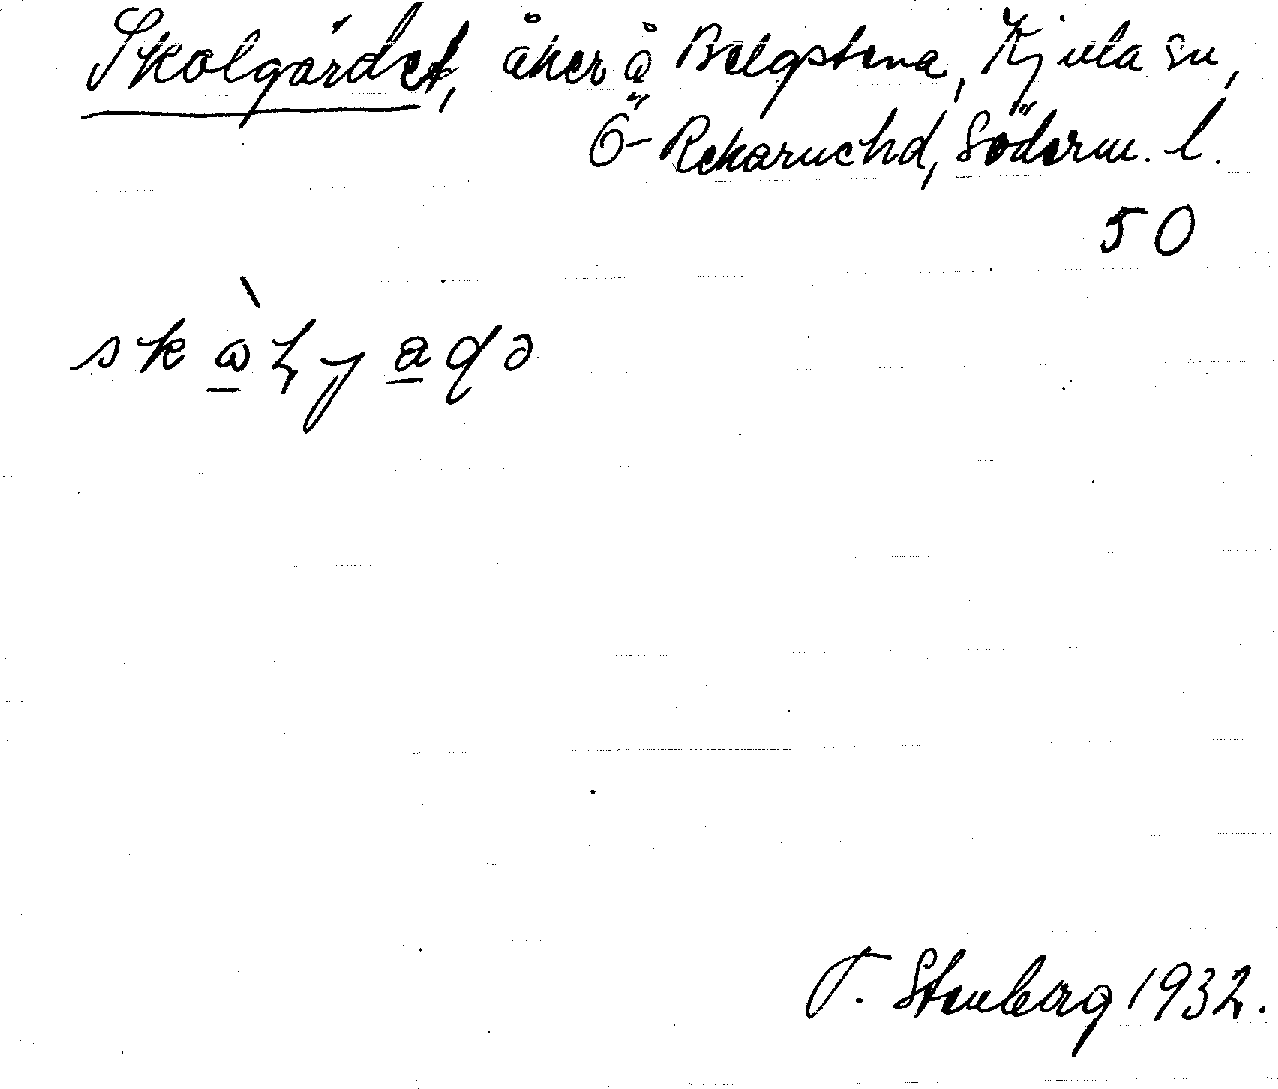 Skolgärdet, åker å Bälgstena, Kjula sn,
Ö-Rekarnehd, Söderm. l.
50
T. Stenberg 1932.